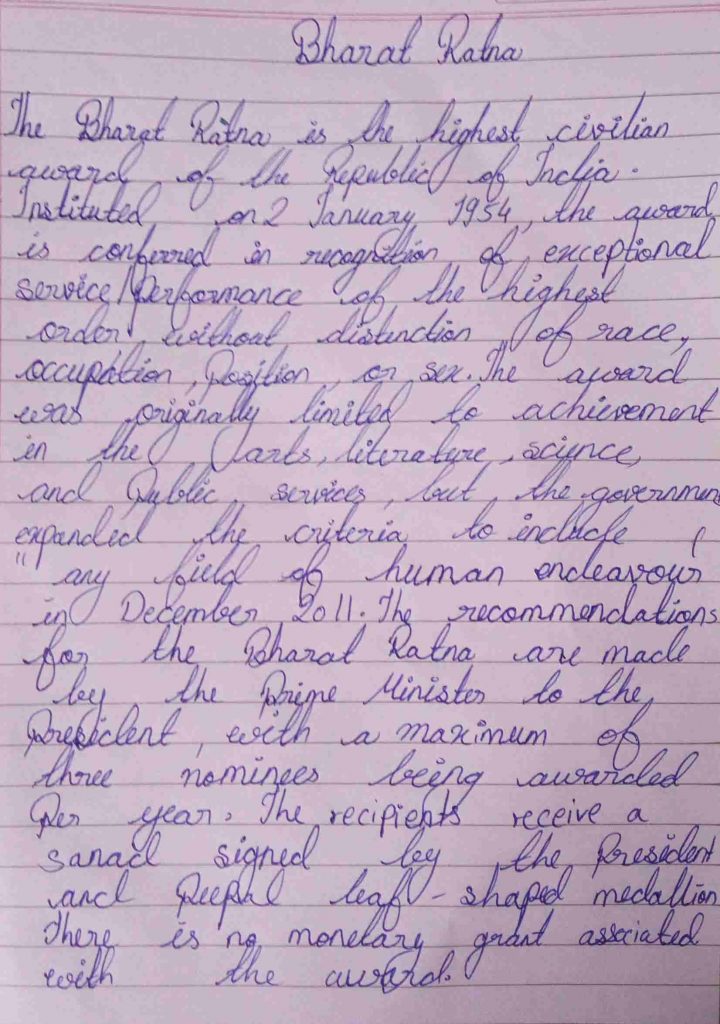 Bharat Ratna
The Bharat Ratna is the highest civilian
award of the Republic of India.
Instituted on 2 January 1954, the award
is conferred in recognition of exceptional
service/performance of the highest
order, without distinction of race,
occupation, position, or sex. The award
was originally limited to achievement
in the arts, literature, science,
and public services, but the government
expanded the criteria to include
"any field of human endeavour"
in December 2011. The recommendations
for the Bharat Ratna are made
by the Prime Minister to the
President, with a maximum of
three nominees being awarded
per year. The recipients receive a
sanad signed by the President
and peepal leaf-shaped medallion
There is no monetary grant associated
with the award.